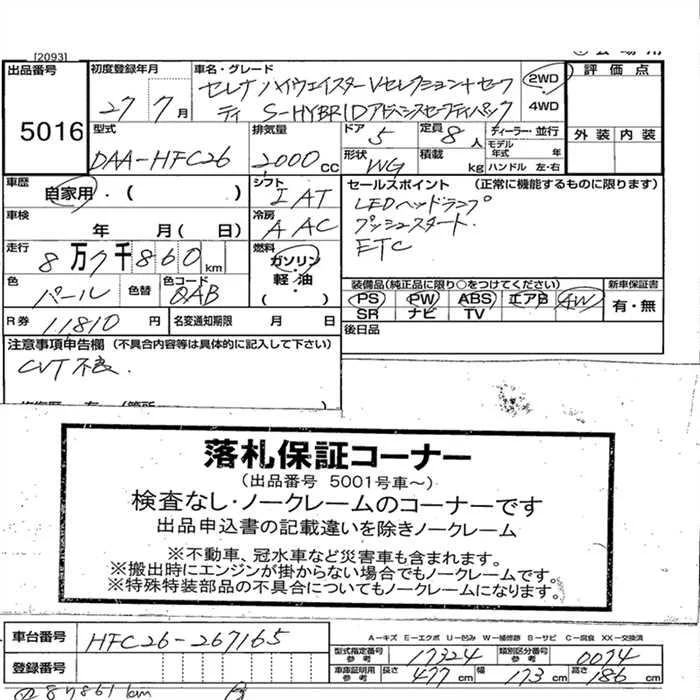 [2093]
出品番号
5016
初度登録年月
27 7月
車名・グレード
セレナ ハイウェイスターVセレクション+セーフ
ティ S-HYBRIDアドバンスセーフティパック
2WD
4WD
評価点
外装 内装
型式
DAA-HFC26
排気量
2000cc
ドア
5
定員
8人
ディーラー・並行
モデル
年式 年
形状
WG
積載
kg
ハンドル 左・右
車歴
自家用・( )
シフト
IAT
車検
年 月( 日)
冷房
AAC
セールスポイント (正常に機能するものに限ります)
LEDヘッドランプ
プッシュスタート.
ETC
走行
8万7千860km
燃料
ガソリン
軽・油
・( )
色
パール
色替
色コード
QAB
装備品(純正品に限り○をつけてください)
PS PW ABS エアB AW
SR ナビ TV
新車保証書
有・無
R券 11810円
名変通知期限 月 日
後日品
注意事項申告欄 (不具合内容等は具体的に記入して下さい)
CVT不良.
落札保証コーナー
(出品番号 5001号車~)
検査なし・ノークレームのコーナーです
出品申込書の記載違いを除きノークレーム
※不動車、冠水車など災害車も含まれます。
※搬出時にエンジンが掛からない場合でもノークレームです。
※特殊特装部品の不具合についてもノークレームになります。
A-キズ E-エクボ U-凹み W-補修跡 S-サビ C-腐食 XX-交換済
車台番号
HFC26-267165
型式指定番号
参考
17324
類別区分番号
参考
0074
登録番号
車庫証明用
参考
長さ 477cm 幅 173cm 高さ 186cm
87861km